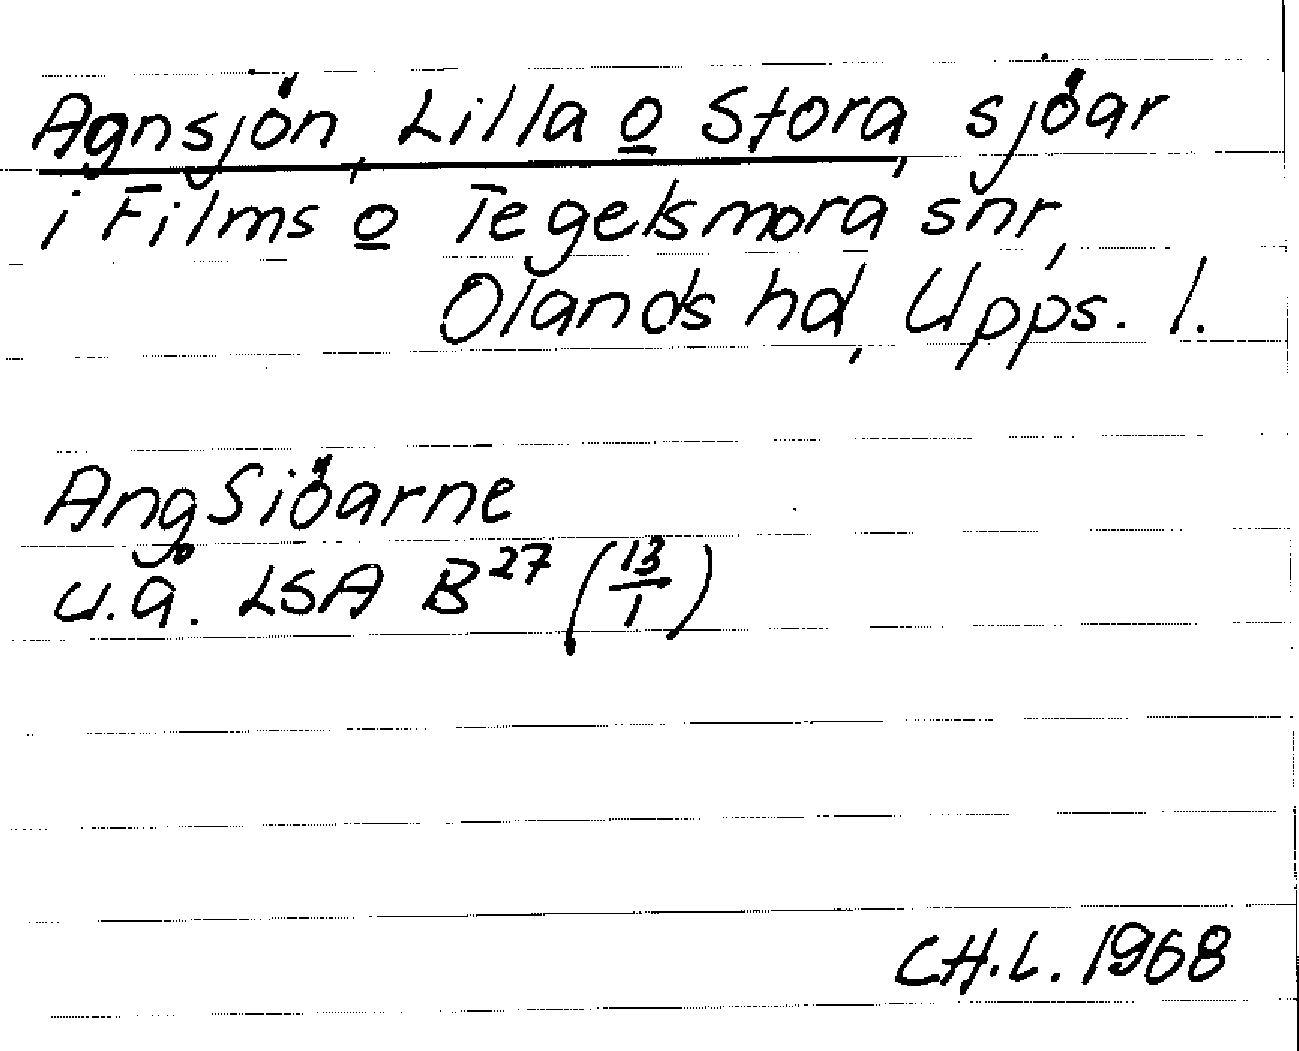 Agnsjön, Lilla o Stora, sjöar
i Films o Tegelsmora snr,
Olands hd, Upps. l.
AngSiöarne
u.å. LSA B²⁷ (13/1)
CH.L. 1968